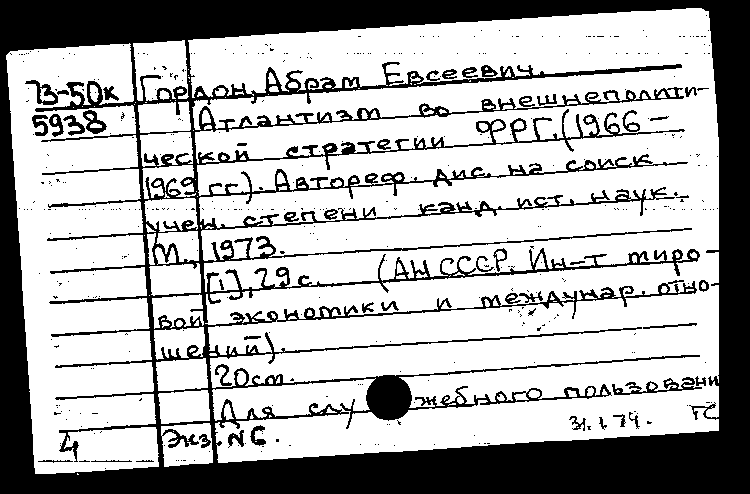 73-50к Гордон, Абрам Евсеевич.
5938 Атлантизм во внешнеполити-
ческой стратегии ФРГ. (1966-
1969 гг.). Автореф. дис. на соиск.
учен. степени канд. ист. наук.
М., 1973.
[1], 29 с. (АН СССР. Ин-т миро-
вой экономики и междунар. отно-
шений).
20 см.
Для служебного пользовани
4 Экз. № 6. 31.1.74. ГС